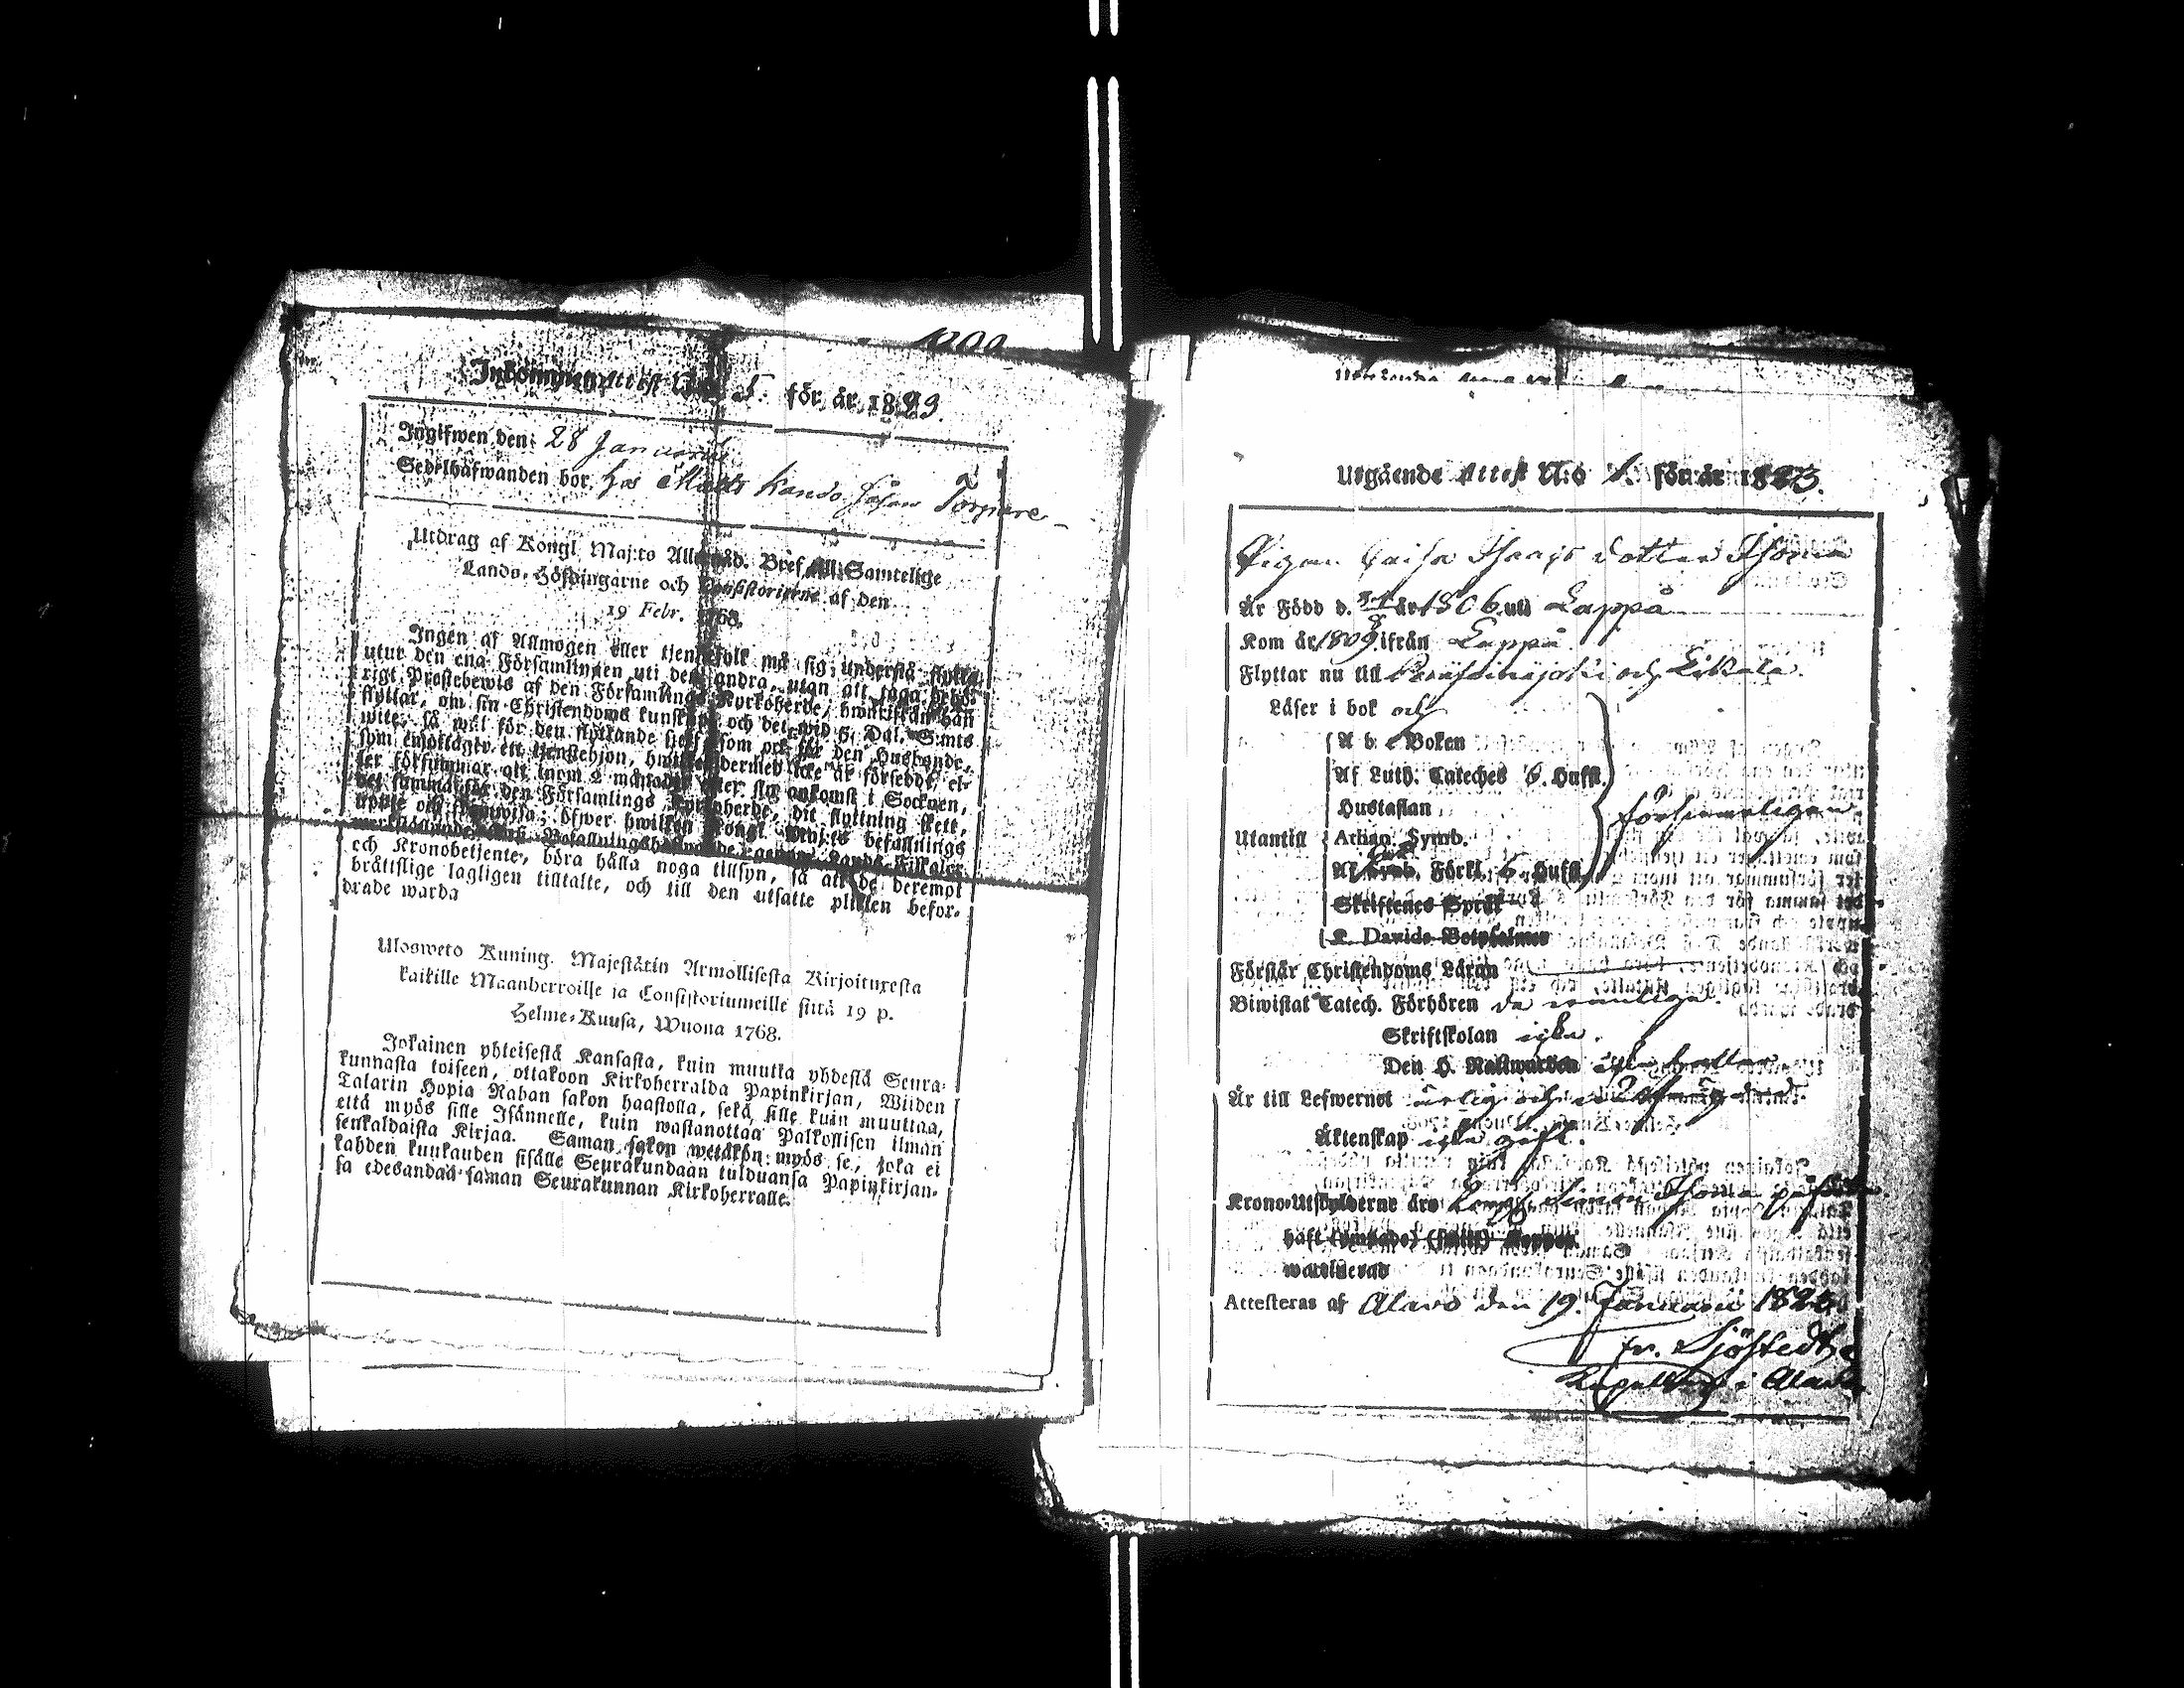 Inkommen Attest N:o 5. för år 1823.
Ingifwen den: 28 Januarii
Sedelhafwanden bor. hos Matts Kando Torpare
Utdrag af Kongl. Maj:ts Allernåd. Bref till Samtelige
Lands-Höfdingarne och Consistorierne af den
19 Febr. 1768.
Ingen af Allmogen eller tjenstefolk må sig understå flytta
utur den ena Församlingen uti den andra, utan att taga behö-
rigt Prestebewis af den Församlings Kyrkoherde, hwarifrån han
flyttar, om sin Christendoms kunskap och det wid 5 Dal. S:mts
wite, så wäl för den flyttande sjelf som ock för den Husbonde,
som emottager ett tjenstehjon, hwilket dermed icke är försedt, el-
ler försummar att inom 2 månader efter sin ankomst i Socknen,
det samma för den Församlings Kyrkoherde, dit flyttning skett,
uppte och framwisa; öfwer hwilket Kongl. Maj:ts befallnings
werkställande K:s Befallningshafwande genom Lands-Fiskaler
och Kronobetjente, böra hålla noga tillsyn, så att de deremot
bråttslige lagligen tilltalte, och till den utsatte plikten befor-
drade warda
Ulosweto Kuning. Majestätin Armollisesta Kirjoituxesta
kaikille Maanherroille ja Consistoriumeille siitä 19 p.
Helme-Kuusa, Wuona 1768.
Jokainen yhteisestä Kansasta, kuin muutta yhdestä Seura-
kunnasta toiseen, ottakoon Kirkoherralda Papinkirjan, Wiiden
Talarin Hopia Rahan sakon haastolla, sekä sille kuin muuttaa,
että myös sille Isännelle, kuin wastanottaa Palkollisen ilman
senkaldaista Kirjaa. Saman sakon wetäkön myös se, joka ei
kahden kuukauden sisälle Seurakundaan tulduansa Papinkirjan-
sa edesandaa saman Seurakunnan Kirkoherralle.
Utgående Attest N:o 1. för år 1823.
Pigan Caisa Isaacs dotter
Är Född d. år 1806 uti Lappå
Kom år 1809 ifrån Lappå
Flyttar nu till och
Läser i bok och
A b c Boken
Af Luth. Cateches 6. Hufst.
Hustaflan
Utantill Athan. Symb.
Af Symb. Förkl. 6. Hufst.
försvarligen
Skriftenes Språk
K. Davids Botpsalmer
Förstår Christendoms Läran
Biwistat Catech. Förhören de wanliga.
Skriftskolan icke.
Den H. Nattwarden icke heller
Är till Lefwernet ärlig och
Äktenskap icke gift.
Krono-Utskylderne äro Simon
haft (smådo) (sitt) Koppor
waccinerad
Attesteras af Alavo den 19. Januari 1823
Fr. Sjöstedt
i Alavo